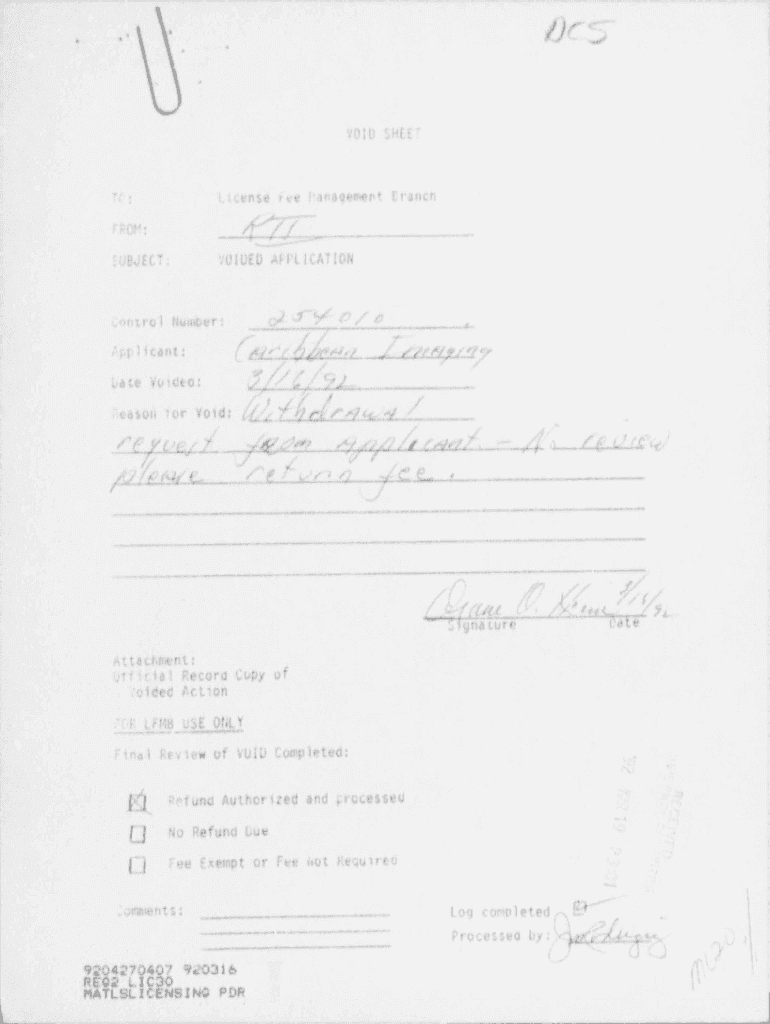 DCS
VOID SHEET
TO: License Fee Management Branch
FROM: RII
SUBJECT: VOIDED APPLICATION
Control Number: 254010
Applicant: Caribbean Imaging
Date Voided: 3/16/92
Reason for Void: Withdrawal
request from applicant - No review
please return fee.
Signature Date
Attachment:
Official Record Copy of
Voided Action
FOR LFMB USE ONLY
Final Review of VOID Completed:
Refund Authorized and processed
No Refund Due
Fee Exempt or Fee Not Required
Comments: Log completed
Processed by:
9204270407 920316
REG2 LIC30
MATLSLICENSING PDR